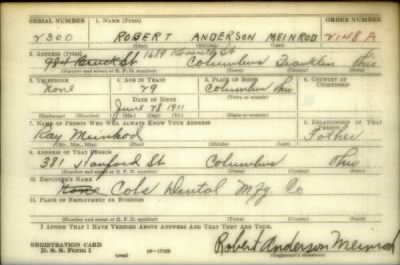 SERIAL NUMBER 1. NAME (Print) ORDER NUMBER
2300 ROBERT ANDERSON MEINROD 2148 A
(First) (Middle) (Last)
2. ADDRESS (Print) 1679
St Columbus Franklin Ohio
(Number and street or R. F. D. number) (Town) (County) (State)
3. TELEPHONE 4. AGE IN YEARS 5. PLACE OF BIRTH 6. COUNTRY OF CITIZENSHIP
None 29 Columbus
DATE OF BIRTH (Town or county)
June 28 1911 Ohio
(Exchange) (Number) (Mo.) (Day) (Yr.) (State or country)
7. NAME OF PERSON WHO WILL ALWAYS KNOW YOUR ADDRESS 8. RELATIONSHIP OF THAT PERSON
Ray Meinrod Father
(Mr., Mrs., Miss) (First) (Middle) (Last)
9. ADDRESS OF THAT PERSON
381 Stanford St Columbus Ohio
(Number and street or R. F. D. number) (Town) (County) (State)
10. EMPLOYER'S NAME
None Cols Dental Mfg Co
11. PLACE OF EMPLOYMENT OR BUSINESS
(Number and street or R. F. D. number) (Town) (County) (State)
I AFFIRM THAT I HAVE VERIFIED ABOVE ANSWERS AND THAT THEY ARE TRUE.
REGISTRATION CARD
D. S. S. Form 1 (over) Robert Anderson Meinrod